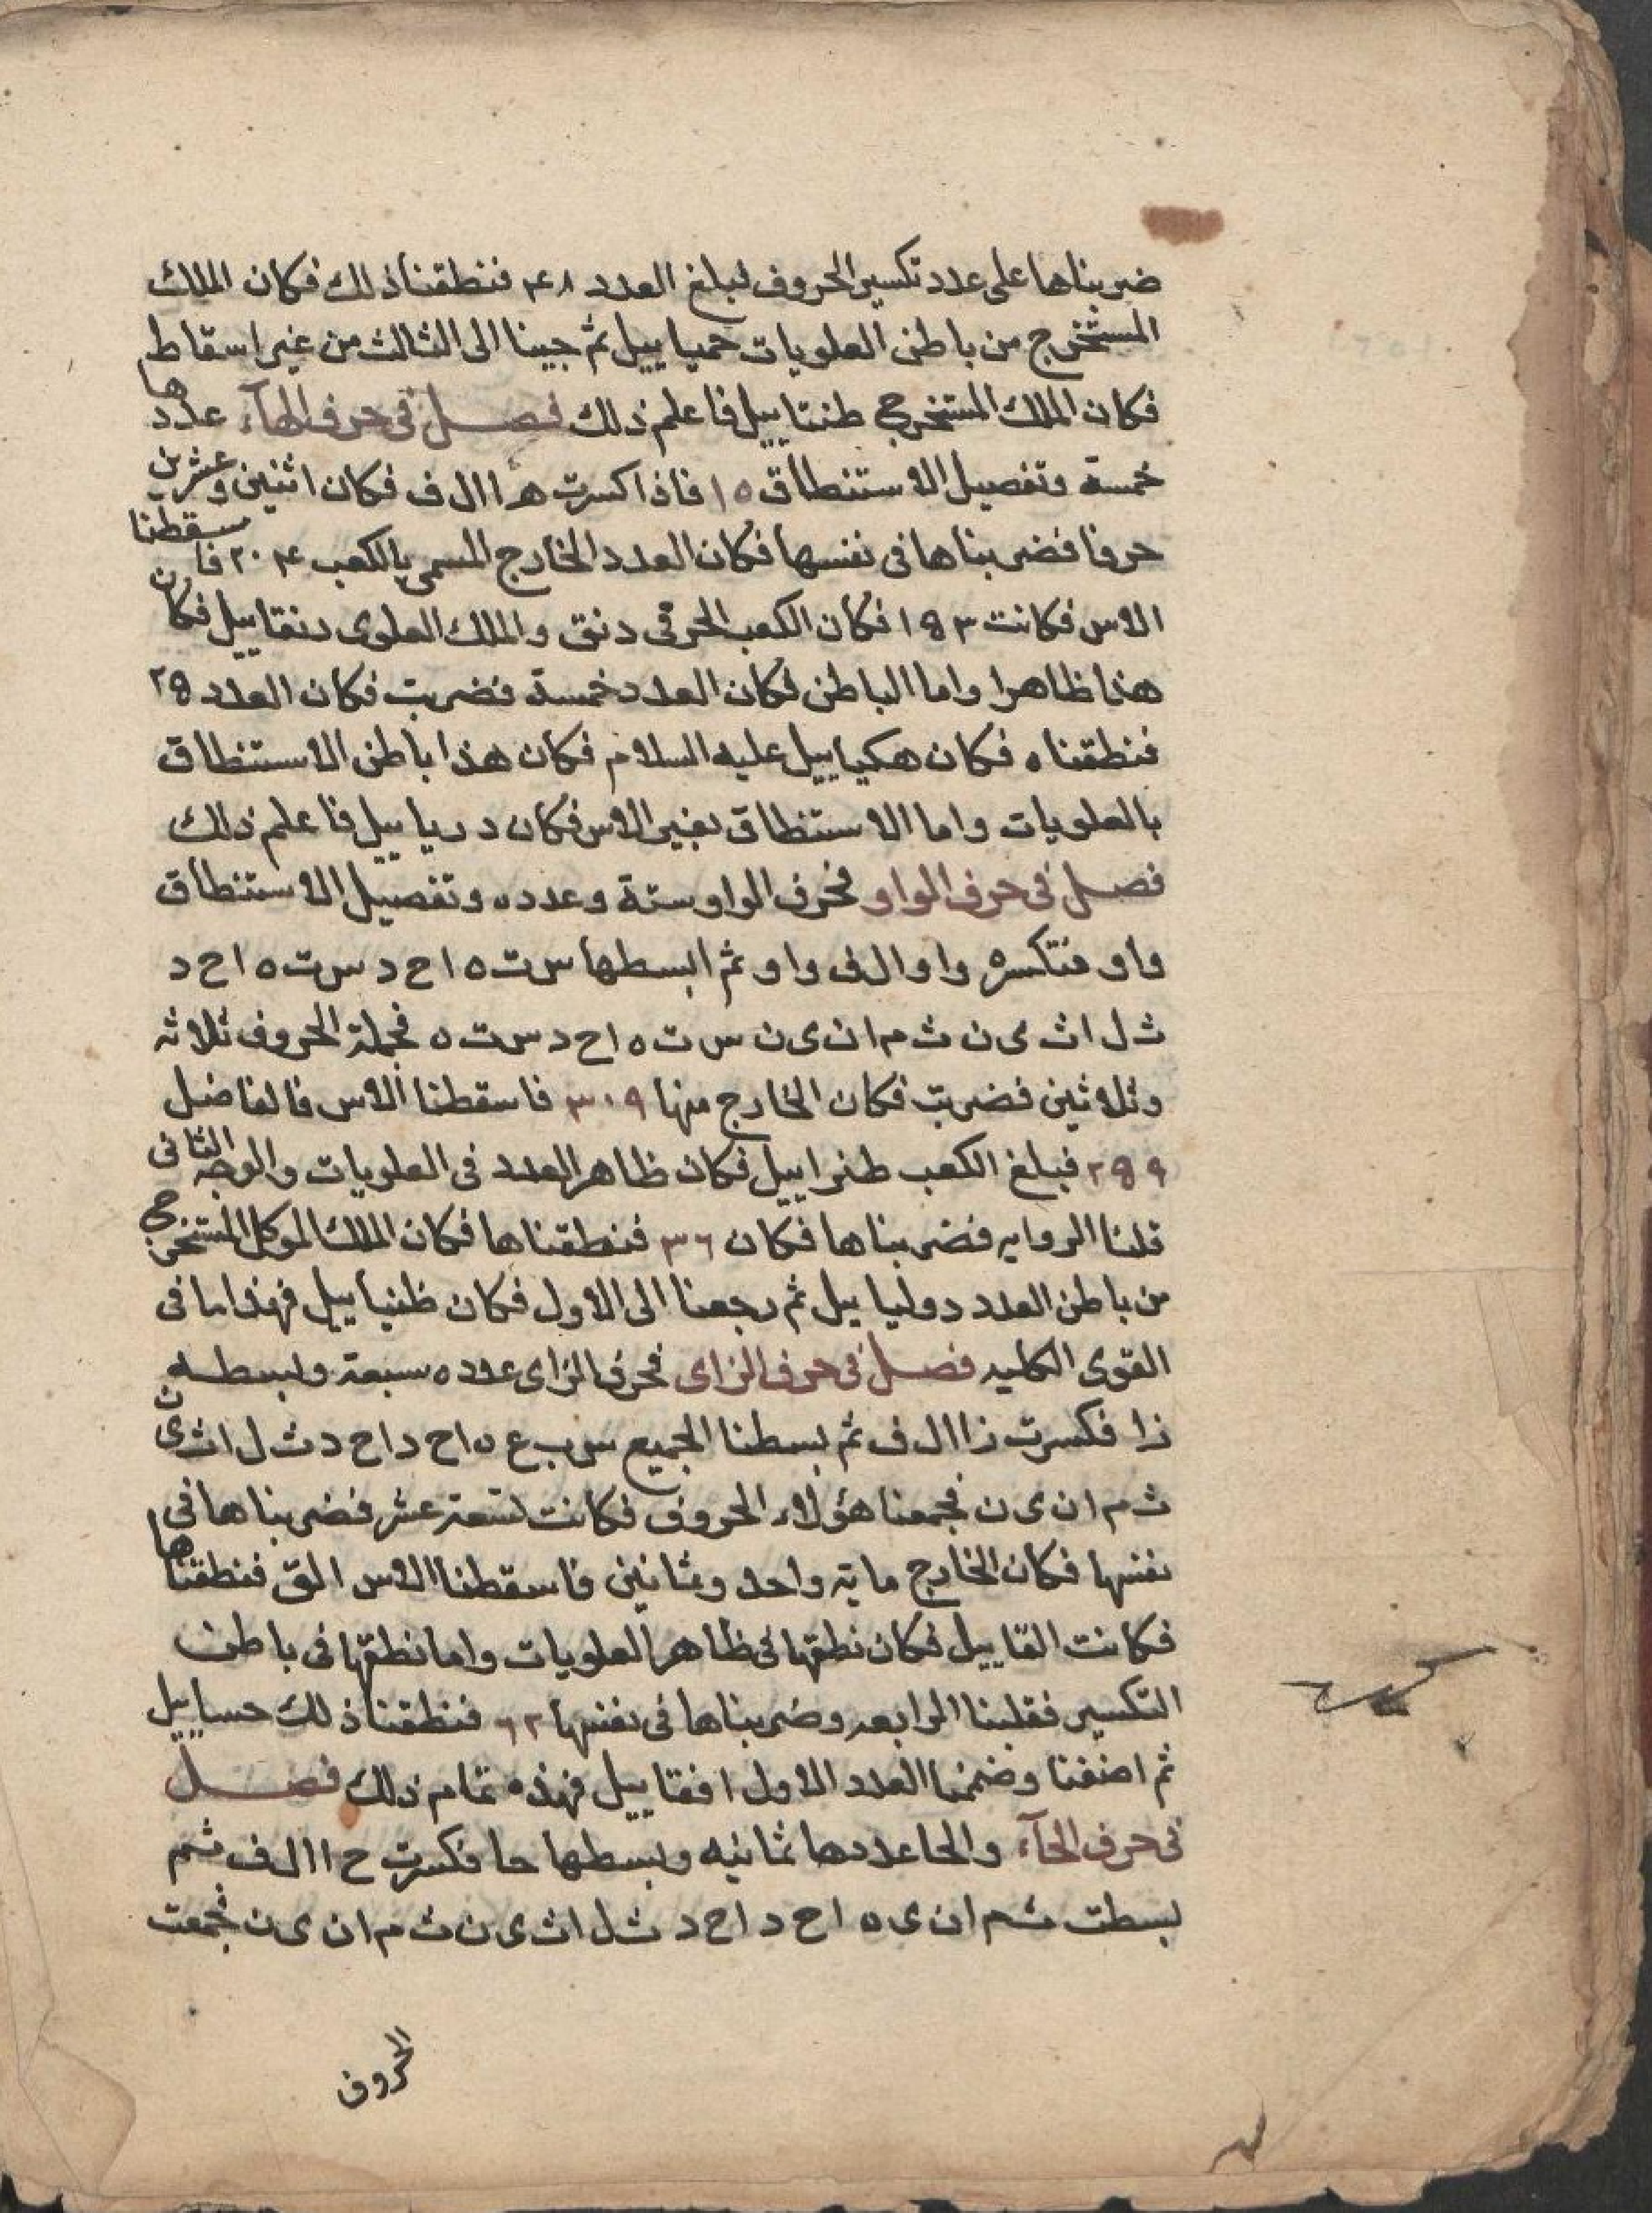 ضربناها على عدد تكسير الحروف فبلغ العدد ٢٤٨ فنطقنا ذلك فكان الملك
المستخرج من باطن العلويات حمياييل ثم جينا الى الثالث من غير اسقاط
فكان الملك المستخرج طنتاييل فاعلم ذلك فصل في حرف الهآء عددها
خمسة وتفصيل الاستنطاق ١٥ فاذا كسرت ه ا ال ف فكان اثنين وعشرين
حرفا فضربناها في نفسها فكان العدد الخارج المسمى بالكعب ٢٠٤ فاسقطنا
الاس فكانت ١٥٣ فكان الكعب الحرفى دنق والملك العلوى دنقاييل فكان
هذا ظاهرا واما الباطن فكان العدد خمسة فضربت فكان العدد ٢٥
فنطقناه فكان هكياييل عليه السلام فكان هذا باطن الاستنطاق
بالعلويات واما الاستنطاق بغير الاس فكان درياييل فاعلم ذلك
فصل في حرف الواو فحرف الواو ستة وعدده وتفصيل الاستنطاق
واو فتكسره واو الف واو ثم ابسطها س ت ه ا ح د س ت ه ا ح د
ث ل ا ث ى ن ث م ا ن ى ن س ت ه ا ح د س ت ه فجملة الحروف ثلاثه
وثلاثين فضربت فكان الخارج منها ٣٠٩ فاسقطنا الاس فالفاضل
٢٥٩ فبلغ الكعب طنراييل فكان ظاهر العدد في العلويات والوجه الثانى
قلنا الروايه فضربناها فكان ٣٦ فنطقناها فكان الملك الموكل المستخرج
من باطن العدد دولياييل ثم رجعنا الى الاول فكان ظنياييل فهذا ما في
القوى الكليه فصل في حرف الزاى فحرف الزاى عدده سبعة وبسطه
زا فكسرت زا ال ف ثم بسطنا الجميع س ب ع ه ا ح د ا ح د ث ل ا ث ى ن
ث م ا ن ى ن فجمعنا هؤلاء الحروف فكانت تسعة عشر فضربناها في
نفسها فكان الخارج مايه واحد وثمانين فاسقطنا الاس الق فنطقناها
فكانت القاييل فكان نطقها في ظاهر العلويات واما نطقها في باطن
التكسير فقلبنا الرابعه وضربناها في نفسها ٦٢ فنطقنا ذلك حساييل
ثم اضفنا وضمنا العدد الاول افقاييل فهذه تمام ذلك فصل
في حرف الحآء والحا عددها ثمانيه وبسطها حا فكسرت ح ا ال ف ثم
بسطت ث م ا ن ى ه ا ح د ا ح د ث ل ا ث ى ن ث م ا ن ى ن فجمعت
الحروف